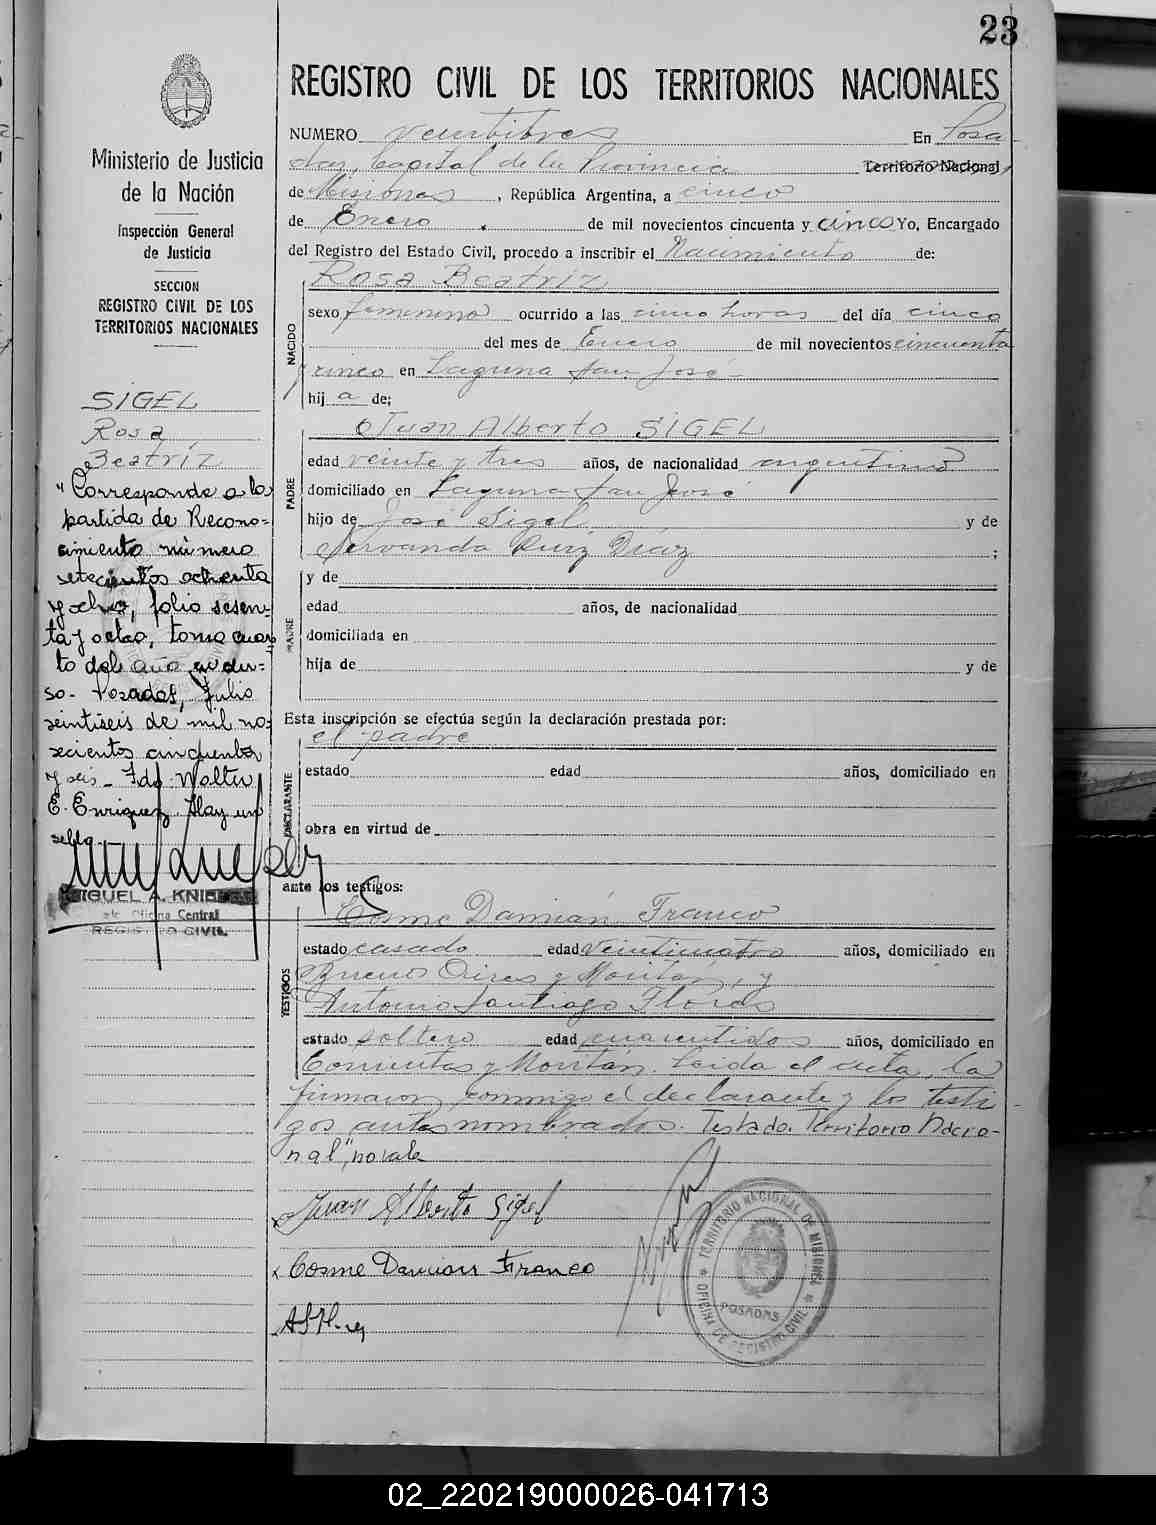 23
REGISTRO CIVIL DE LOS TERRITORIOS NACIONALES
Ministerio de Justicia
de la Nación
Inspección General
de Justicia
SECCION
REGISTRO CIVIL DE LOS
TERRITORIOS NACIONALES
SIGEL
Rosa
Beatríz
"Corresponde a la
partida de Recono-
cimiento número
setecientos ochenta
y ocho, folio sesen-
ta y ocho, tomo cuar-
to del año en cur-
so - Posadas, Julio
veintiseis de mil no-
vecientos cincuenta
y seis - Fdo. Walter
E. Enriquez. Hay un
sello
MIGUEL A.
Oficina Central
REGISTRO CIVIL
NUMERO veintitres En Posa-
das, Capital de la Provincia Territorio Nacional
de Misiones, República Argentina, a cinco
de Enero de mil novecientos cincuenta y cinco Yo, Encargado
del Registro del Estado Civil, procedo a inscribir el Nacimiento de:
NACIDO
Rosa Beatríz
sexo femenino ocurrido a las cinco horas del día cinco
del mes de Enero de mil novecientos cincuenta
y cinco en Laguna San José
hij a de:
PADRE
Juan Alberto SIGEL
edad veinte y tres años, de nacionalidad argentino
domiciliado en Laguna San José
hijo de José Sigel y de
Servanda Ruiz Díaz ;
MADRE
y de
edad años, de nacionalidad
domiciliada en
hija de y de
Esta inscripción se efectúa según la declaración prestada por:
DECLARANTE
el padre
estado edad años, domiciliado en
obra en virtud de
ante los testigos:
TESTIGOS
Cosme Damián Franco
estado casado edad veinticuatro años, domiciliado en
Buenos Aires y Moritán, y
Antonio Santiago Flores
estado soltero edad cuarentidos años, domiciliado en
Corrientes y Moritán. Leida el acta, la
firmaron conmigo el declarante y los testi
gos antes nombrados. Testado: Territorio Nacio-
nal", no vale
Juan Alberto Sigel
Cosme Damian Franco
TERRITORIO NACIONAL DE MISIONES
POSADAS
OFICINA DE REGISTRO CIVIL
02_220219000026-041713